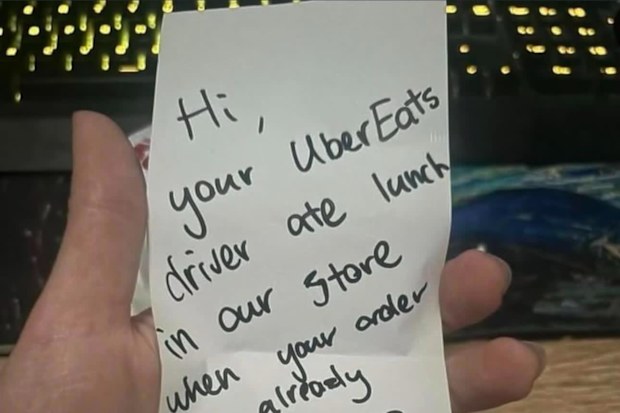 Hi,
your UberEats
driver ate lunch
in our store
when your order
already